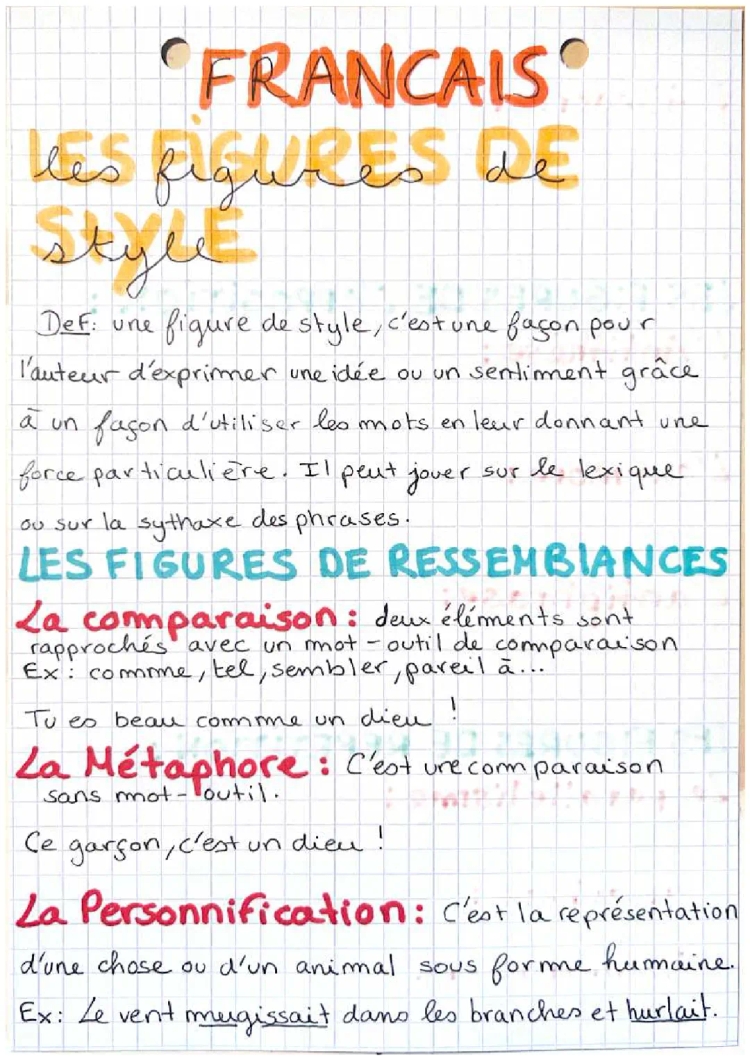 FRANCAIS
les figures de
style
Def: une figure de style, c'est une façon pour
l'auteur d'exprimer une idée ou un sentiment grâce
à un façon d'utiliser les mots en leur donnant une
force particulière. Il peut jouer sur le lexique
ou sur la sythaxe des phrases.
LES FIGURES DE RESSEMBlANCES
La comparaison : deux éléments sont
rapprochés avec un mot-outil de comparaison
Ex : comme, tel, sembler, pareil à...
Tu es beau comme un dieu !
La Métaphore : C'est une comparaison
sans mot-outil.
Ce garçon, c'est un dieu !
La Personnification : C'est la représentation
d'une chose ou d'un animal sous forme humaine.
Ex : Le vent mugissait dans les branches et hurlait.